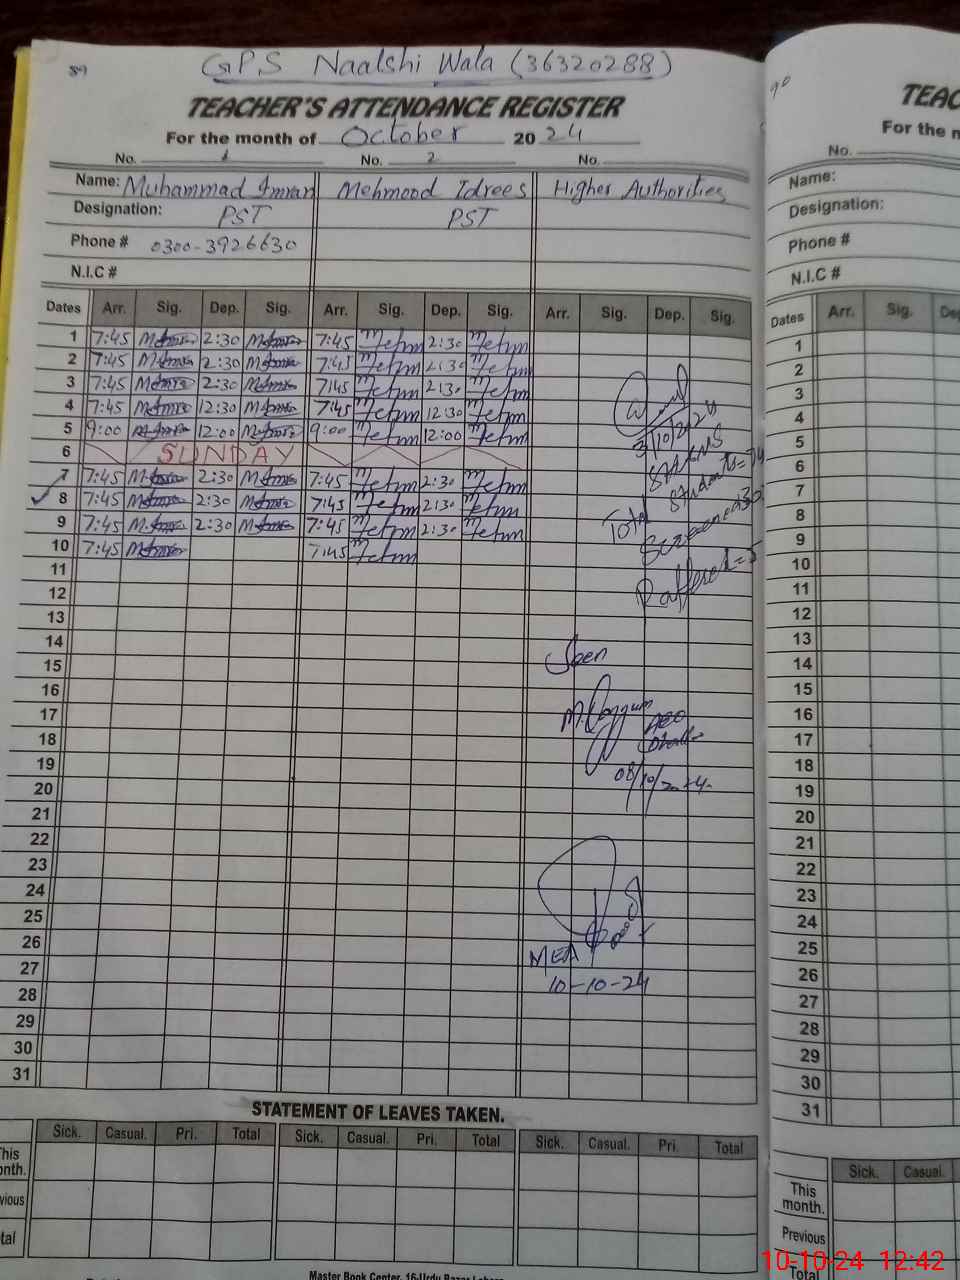 89
GPS Naalshi Wala (36320288)
TEACHER'S ATTENDANCE REGISTER
For the month of October 2024
No. 1 No. 2 No.
Name: Muhammad Imran Mehmood Idrees Higher Authorities
Designation: PST PST
Phone # 0300-3926630
N.I.C #
Dates Arr. Sig. Dep. Sig. Arr. Sig. Dep. Sig. Arr. Sig. Dep. Sig.
1 7:45 2:30 7:45 2:30
2 7:45 2:30 7:45 2:30
3 7:45 2:30 7:45 2:30
4 7:45 12:30 7:45 12:30
5 9:00 12:00 9:00 12:00
6 SUNDAY
7 7:45 2:30 7:45 2:30
8 7:45 2:30 7:45 2:30
9 7:45 2:30 7:45 2:30
10 7:45 7:45
11
12
13
14
15
16
17
18
19
20
21
22
23
24
25
26
27
28
29
30
31
3/10/2024
Total Students=
Screened=30
Raffered=5
Seen
AEO
08/10/2024
MEA
10-10-24
STATEMENT OF LEAVES TAKEN.
Sick. Casual. Pri. Total Sick. Casual. Pri. Total Sick. Casual. Pri. Total
This
month.
vious
tal
Master Book Center, 16-Urdu Bazar
90
TEAC
For the m
No.
Name:
Designation:
Phone #
N.I.C #
Dates Arr. Sig. Dep
1
2
3
4
5
6
7
8
9
10
11
12
13
14
15
16
17
18
19
20
21
22
23
24
25
26
27
28
29
30
31
Sick. Casual.
This
month.
Previous
Total
10-10-24 12:42